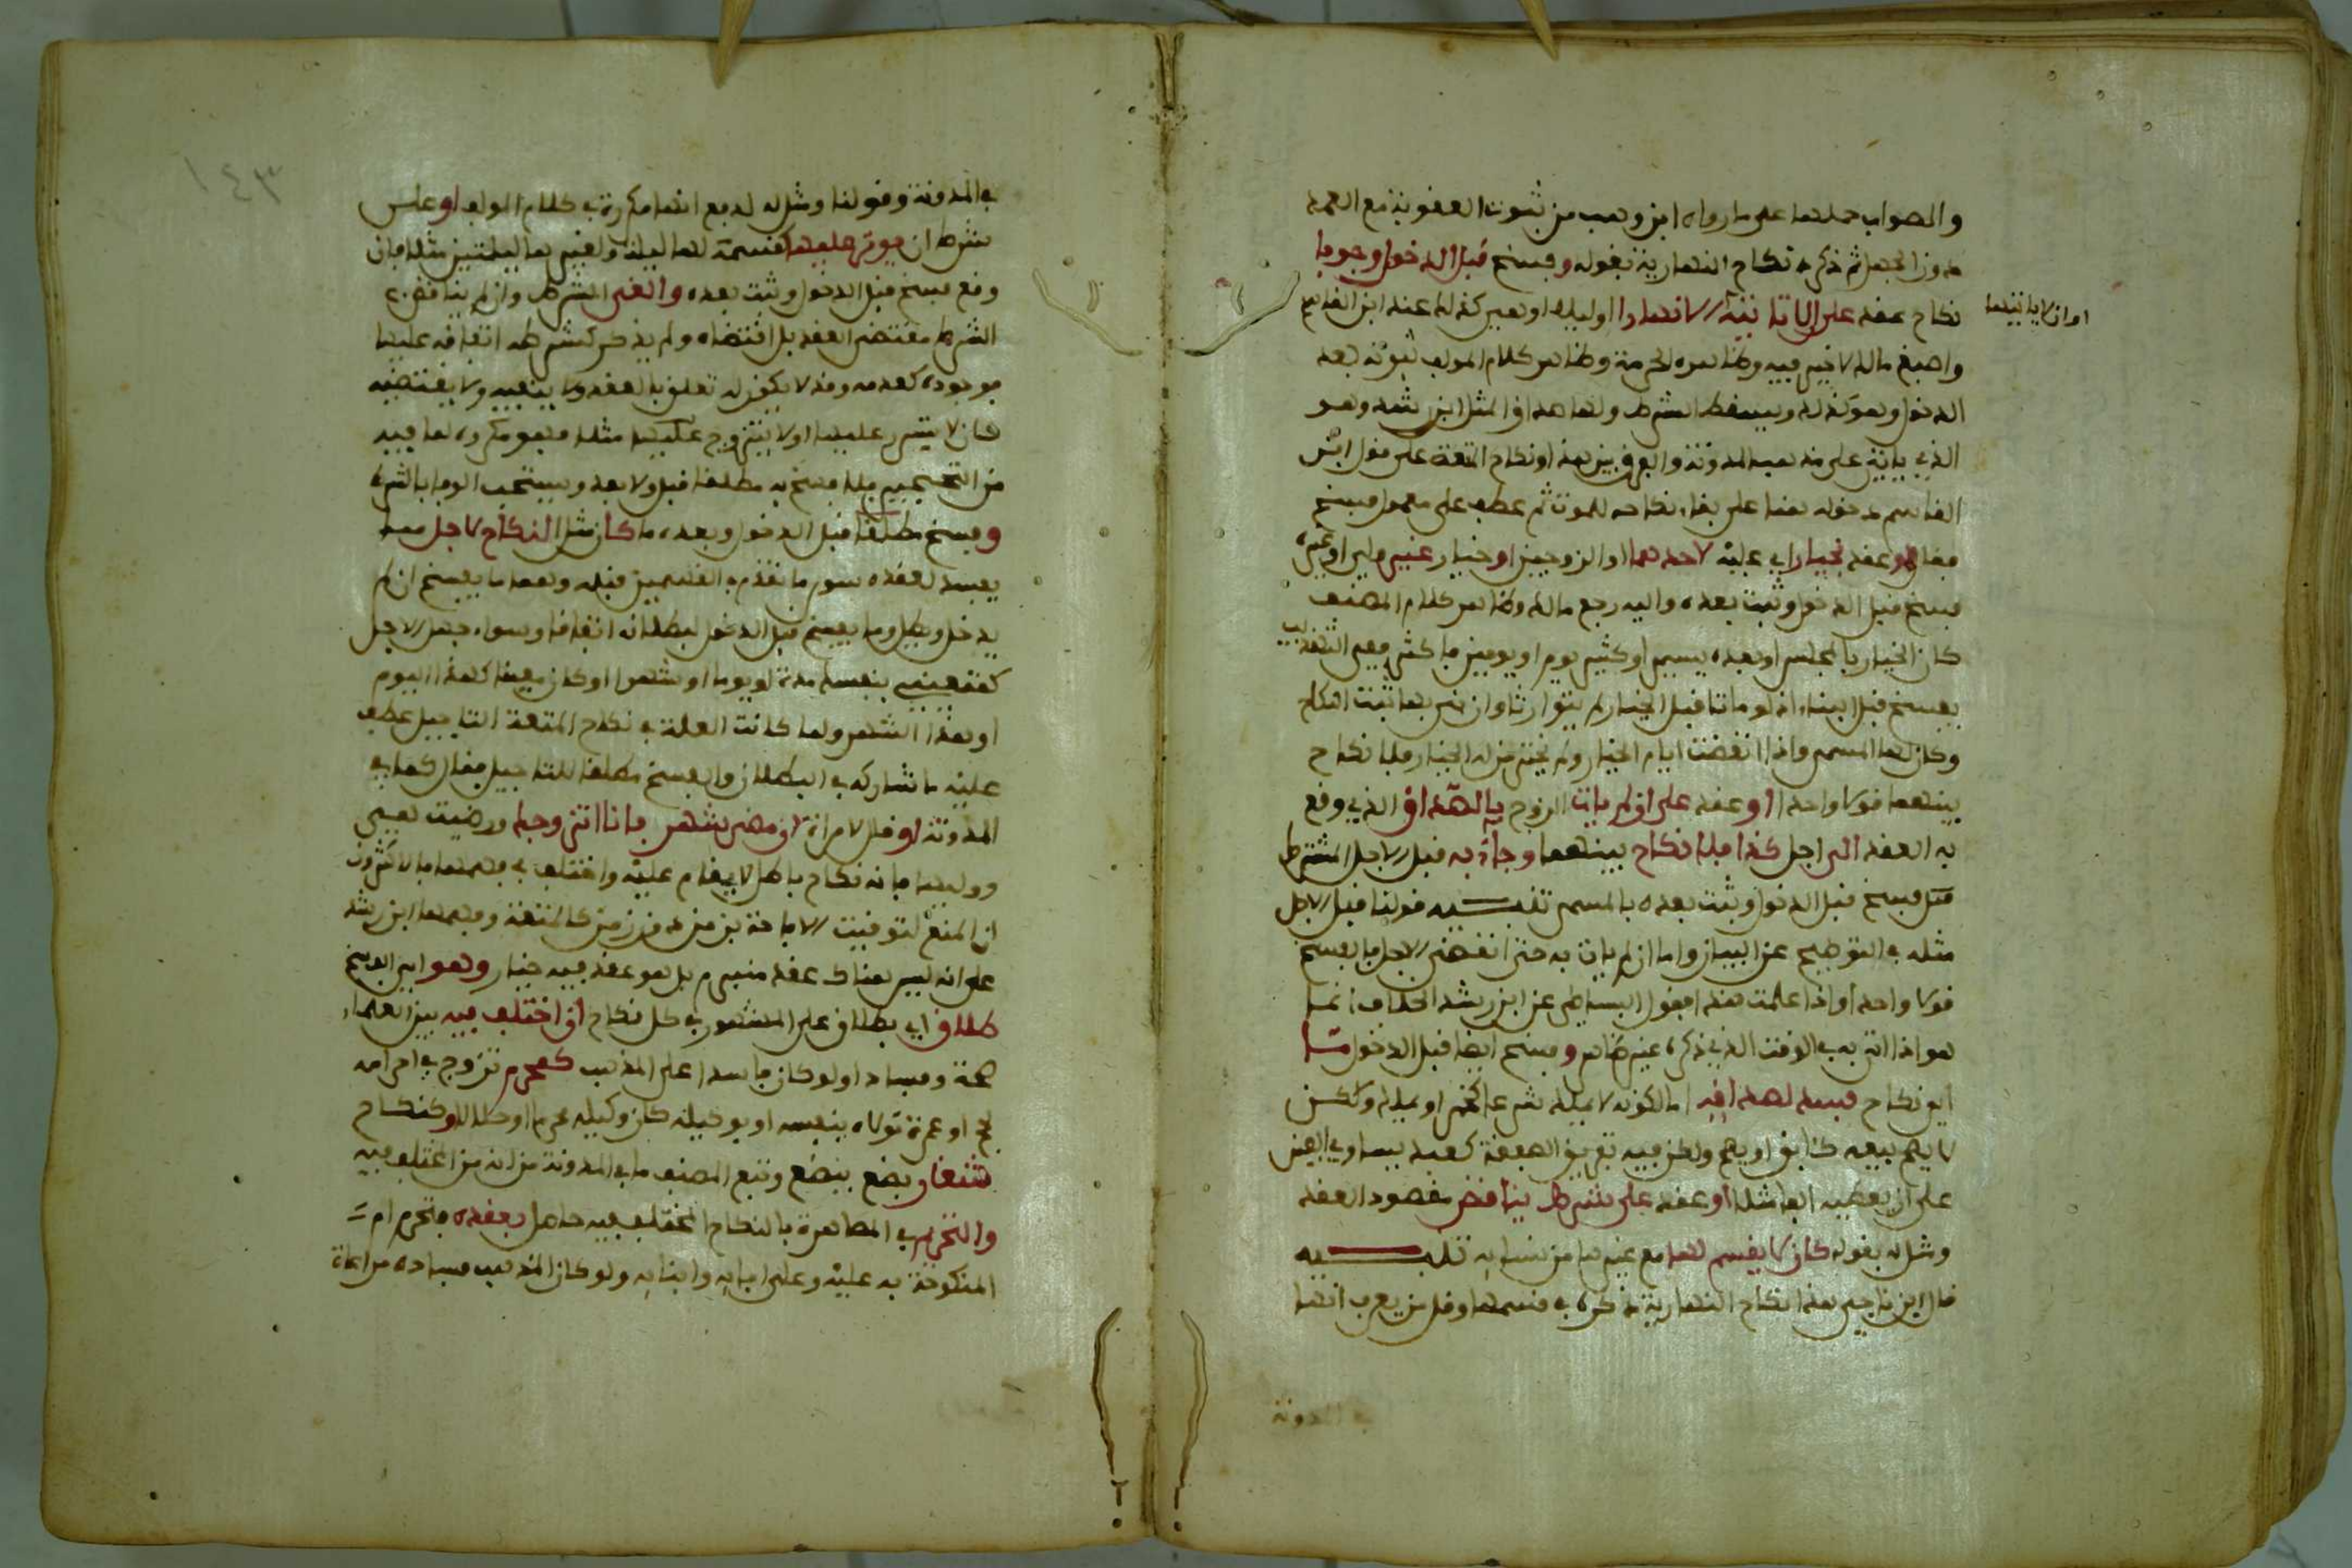 والصواب حملها على ما رواه ابن وهب من ثبوت العقوبة مع العمد
دون الجهل ثم ذكر نكاح النهارية بقوله وفسخ قبل الدخول وجوبا
نكاح عقد على ان لا تاتيه الا نهارا او ليلا او بعض كذلك عند ابن القاسم
او ان لا ياتيها
واصبغ مالك لا خير فيه وظاهره الحرمة وظاهر كلام المولف ثبوته بعد
الدخول وهو كذلك ويسقط الشرط ولها صداق المثل ابن رشد وهو
الذي ياتي على مذهب المدونة والفرق بين هذا ونكاح المتعة على قول ابن
القاسم دخوله هنا على بقاء نكاحه للموت ثم عطف على معمول فسخ
فقال او عقد بخيار اي عليه لاحدهما او الزوجين او خيار غير ولي او غيره
فسخ قبل الدخول وثبت بعده واليه رجع مالك وظاهر كلام المصنف
كان الخيار بالمجلس او بعده يسير او كثير يوم او يومين فاكثر ففي التهذيب
يفسخ قبل البناء اذ لو ماتا قبل الخيار لم يتوارثا وان بنى بها ثبت النكاح
وكان لها المسمى واذا انقضت ايام الخيار ولم يختر من له الخيار فلا نكاح
بينهما قولا واحدا او عقد على ان لم يات الزوج بالصداق الذي وقع
به العقد الى اجل كذا فلا نكاح بينهما وجاء به قبل الاجل المشترط
فسخ قبل الدخول وثبت بعده بالمسمى تنبيه قولنا قبل الاجل
مثله في التوضيح عن البيان واما ان لم يات به حتى انقضى الاجل فالفسخ
قولا واحدا واذا علمت هذا فقول البساطي عن ابن رشد الخلاف انما
هو اذا اتى به في الوقت الذي ذكره غير ظاهر وفسخ ايضا قبل الدخول ما
اي نكاح فسد لصداقه اما لكونه لا يملك شرعا كخمر او يملك ولكن
لا يصح بيعه كآبق او يصح ولكن فيه تفريق الصفقة كعبد يساوي الفين
على ان يعطيه الفا مثلا او عقد على شرط يناقض مقصود العقد
ومثل له بقوله كان لا يقسم لها مع غيرها من نسائه تنبيه
قال ابن ناجي هذا نكاح النهارية ذكره في قسمها وقل من يعرف انها
في المدونة
١٤٣
في المدونة وقولنا ومثل له لدفع انها مكررة في كلام المولف او على
شرط ان يوثر عليها كقسمة لها ليلة ولغيرها ليلتين مثلا فان
وقع فسخ قبل الدخول وثبت بعده والغي الشرط وان لم يناقض
الشرط مقتضى العقد بل اقتضاه ولم يذكر كشرط انفاقه عليها
فوجوده كعدمه وقد لا يكون له تعلق بالعقد ولا ينفيه ولا يقتضيه
كان لا يتسرى عليها او لا يتزوج عليها مثلا فهو مكروه لما فيه
من التحجير فلا فسخ به مطلقا قبل ولا بعد ويستحب الوفا بالشرط
وفسخ مطلقا قبل الدخول وبعده ما كان مثل النكاح لاجل مما
يفسد لعقده سوى ما تقدم في القسمين قبله وهما ما يفسخ ان لم
يدخل ويطل وما يفسخ قبل الدخول لبطلانه اتفاقا وسواء جهل الاجل
كتعيين بنفسه مدة او يوما او شهرا او كان معينا كهذا اليوم
او هذا الشهر ولما كانت العلة في نكاح المتعة التاجيل عطف
عليه ما شاركه في البطلان والفسخ مطلقا للتاجيل فقال كما في
المدونة او قال لامراة ان مضى شهر فانا اتزوجك ورضيت هي
ووليها فانه نكاح باطل لا يقام عليه واختلف في فهمها فالاكثرون
ان المنع لتوقيت الاباحة بزمن دون زمن كالمتعة وفهمها ابن رشد
على انه ليس هناك عقد منبرم بل هو عقد فيه خيار وهو اي الفسخ
طلاق اي بطلاق على المشهور في كل نكاح ان اختلف فيه بين العلماء
صحة وفسادا ولو كان فاسدا على المذهب كمحرم تزوج في احرامه
بحج او عمرة تولاه بنفسه او بوكيله كان وكيله محرما او حلالا وكنكاح
شغار بضع ببضع وتبع المصنف ما في المدونة من انه من المختلف فيه
والتحريم في المصاهرة بالنكاح المختلف فيه حاصل بعقده فتحرم ام
المنكوحة به عليه وعلى ابائه وابنائه ولو كان المذهب فساده مراعاة